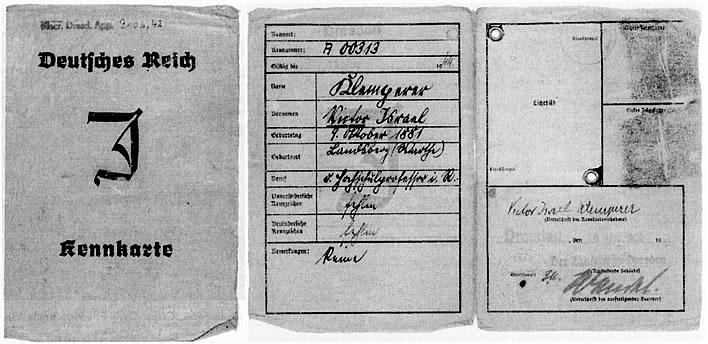 Mscr. Dresd. App. 2003, 42
Deutsches Reich
J
Kennkarte
Kennort:
Kennnummer: A 00313
Gültig bis 1944
Name Klemperer
Vornamen Victor Israel
Geburtstag 9. Oktober 1881
Geburtsort Landsberg (Warthe)
Beruf o. Hochschulprofessor i. R.
Unveränderliche
Kennzeichen fehlen
Veränderliche
Kennzeichen fehlen
Bemerkungen: Keine
Dienststempel
Lichtbild
Rechter Zeigefinger
Linker Zeigefinger
Dienststempel
Victor Israel Klemperer
(Unterschrift des Kennkarteninhabers)
, den 19
(Ausstellende Behörde)
Dienststempel
(Unterschrift des ausfertigenden Beamten)